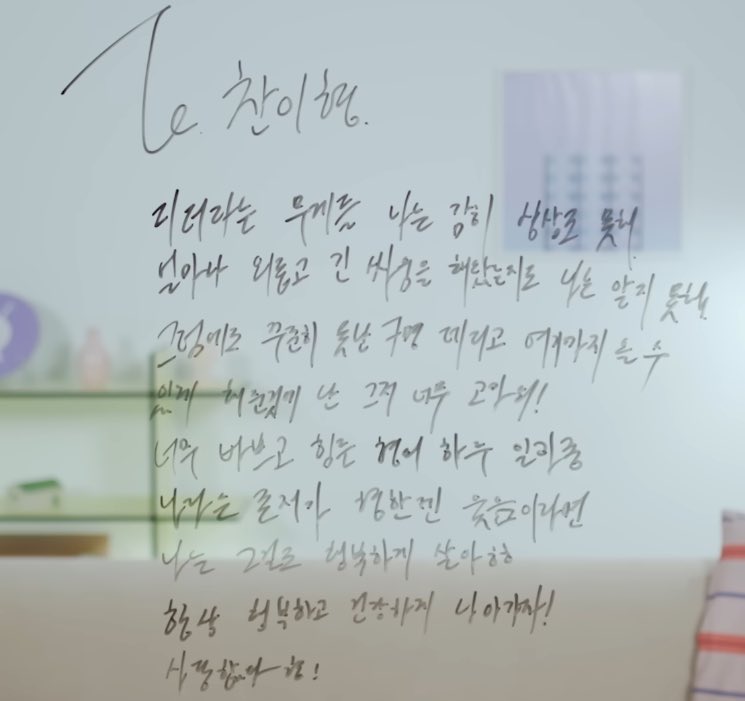 To. 찬이형.
리더라는 무게를 나는 감히 상상도 못해.
얼마나 외롭고 긴 싸움을 해왔는지도 나는 알지 못해.
그럼에도 꾸준히 못난 7명 데리고 여기까지 올 수
있게 해준것에 난 그저 너무 고마워!
너무 바쁘고 힘든 형의 하루 일과중
나라는 존재가 형한텐 웃음이라면
나는 그걸로 행복하게 살아 형
항상 행복하고 건강하게 나아가자!
사랑합니다 형!